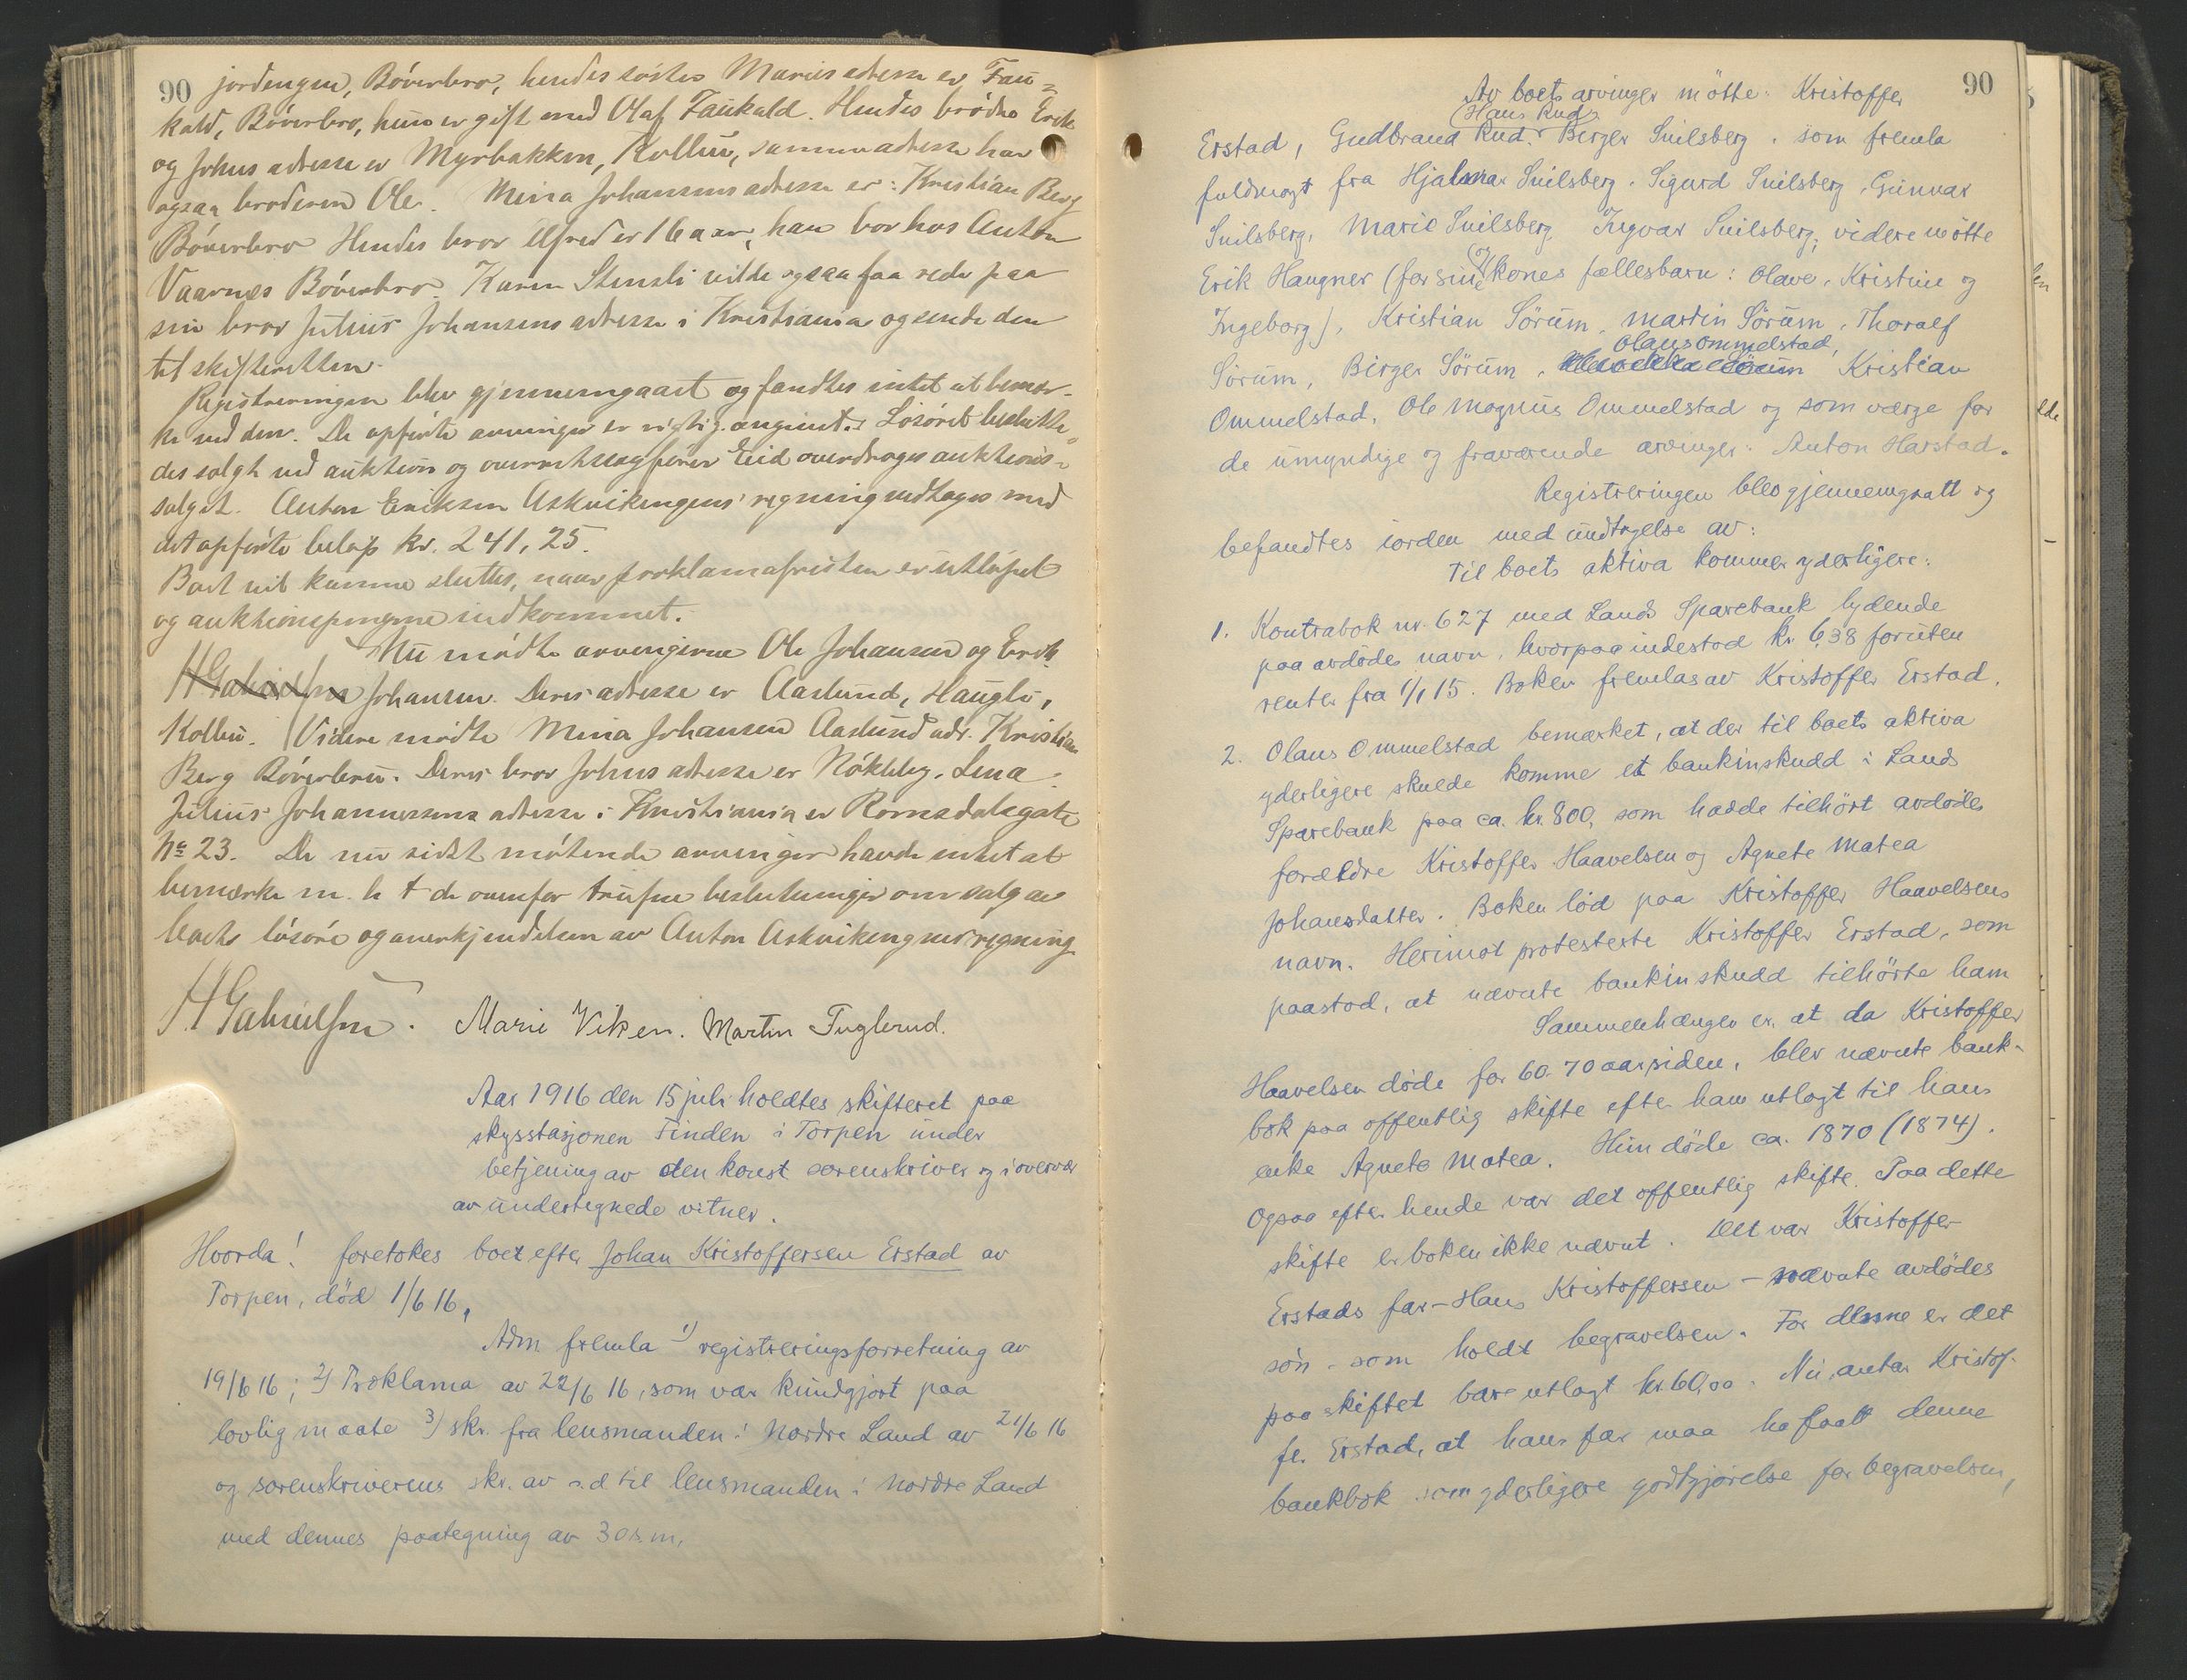 90 jordengen, Böverbro, hendes söster Maries adresse er Fau-
kald, Böverbro, hun er gift med Olaf Faukald. Hendes brödre Erik
og Johus adresse er Myrbakken, Kolbu, samme adresse har
ogsaa broderen Ole. Mina Johansens adresse er: Kristian Berg
Böverbro Hendes bror Alfred er 16 aar, han bor hos Anton
Vaarnes Böverbro. Karen Stensli vilde ogsaa faa rede paa
sin bror Julius Johansens adresse i Kristiania og sende den
til skifteretten.
Registreringen blev gjennemgaaet og fandtes intet at bemær-
ke ved den. De opförte arvinger er rigtig angivet. Lösöret beslutte-
des solgt ved auktion og overretssagförer Eid overdroges auktions-
salget. Anton Eriksen Askvikengens regning vedtages med
det opförte belöp kr. 241,25.
Boet vil kunne sluttes, naar proklamafristen er utlöpet
og auktionspengene indkommet.
Nu mödte arvingerne Ole Johansen og Erik
HGabrielsen Johansen. Deres adresse er Aaslund, Hauglu,
Kolbu. Videre mödte Mina Johansen Aaslund adr. Kristian
Berg Böverbru. Deres bror Johus adresse er Nökleby, Lena.
Julius Johannesens adresse i Kristiania er Romsdalsgate
No 23. De nu sidst mötende arvinger havde intet at
bemærke m. h t de ovenfor trufne beslutninger om salg av
boets lösöre og anerkjendelsen av Anton Askvikengens regning
HGabrielsen. Marie Viken. Martin Fuglerud.
Aar 1916 den 15 juli holdtes skifteret paa
skysstasjonen Finden i Torpen under
betjening av den konst sorenskriver og i overvær
av undertegnede vitner.
Hvorda! foretokes boet efter Johan Kristoffersen Erstad av
Torpen, död 1/6 16.
Adm fremla 1) registreringsforretning av
19/6 16; 2) Proklama av 22/6 16, som var kundgjort paa
lovlig maate 3) skr. fra lensmanden i Nordre Land av 21/6 16
og sorenskriverens skr. av s.d til lensmanden i Nordre Land
med dennes paategning av 30 s.m.
90
Av boets arvinger mötte: Kristoffer
Hans Rud
Erstad, Gudbrand Rud. Berger Snilsberg, som fremla
fuldmagt fra Hjalmar Snilsberg, Sigurd Snilsberg, Gunvar
Snilsberg, Marie Snilsberg Ingvar Snilsberg, videre mötte
Erik Haugner (for sin og kones fællesbarn: Olave, Kristine og
Ingeborg), Kristian Sörum, Martin Sörum, Thoralf
Olaus Ommelstad,
Sörum, Birger Sörum, Kristian
Ommelstad, Ole Magnus Ommelstad og som værge for
de umyndige og fraværende arvinger: Anton Harstad.
Registreringen blev gjennemgaatt og
befandtes iorden med undtagelse av:
Til boets aktiva kommer yderligere:
1. Kontrabok nr. 627 med Lands Sparebank lydende
paa avdödes navn, hvorpaa indestod kr. 6,38 foruten
renter fra 1/1 15. Boken fremlas av Kristoffer Erstad.
2. Olaus Ommelstad bemærket, at der til boets aktiva
yderligere skulde komme et bankinskudd i Lands
Sparebank paa ca. kr. 800, som hadde tilhört avdödes
forældre Kristoffer Haavelsen og Agnete Matea
Johansdatter. Boken löd paa Kristoffer Haavelsens
navn. Herimot protesterte Kristoffer Erstad, som
paastod, at nævnte bankinskudd tilhörte ham
Sammenhængen er, at da Kristoffer
Haavelsen döde for 60-70 aar siden, blev nævnte bank-
bok paa offentlig skifte efter ham utlagt til hans
enke Agnete Matea. Hun döde ca. 1870 (1874).
Ogsaa efter hende var det offentlig skifte. Paa dette
skifte er boken ikke nævnt. Det var Kristoffer
Erstads far - Hans Kristoffersen - nævnte avdödes
sön - som holdt begravelsen. For denne er det
paa skiftet bare utlagt kr. 60,00. Nu antar Kristof-
fer Erstad, at hans far maa ha faatt denne
bankbok som yderligere godtgjörelse for begravelsen,